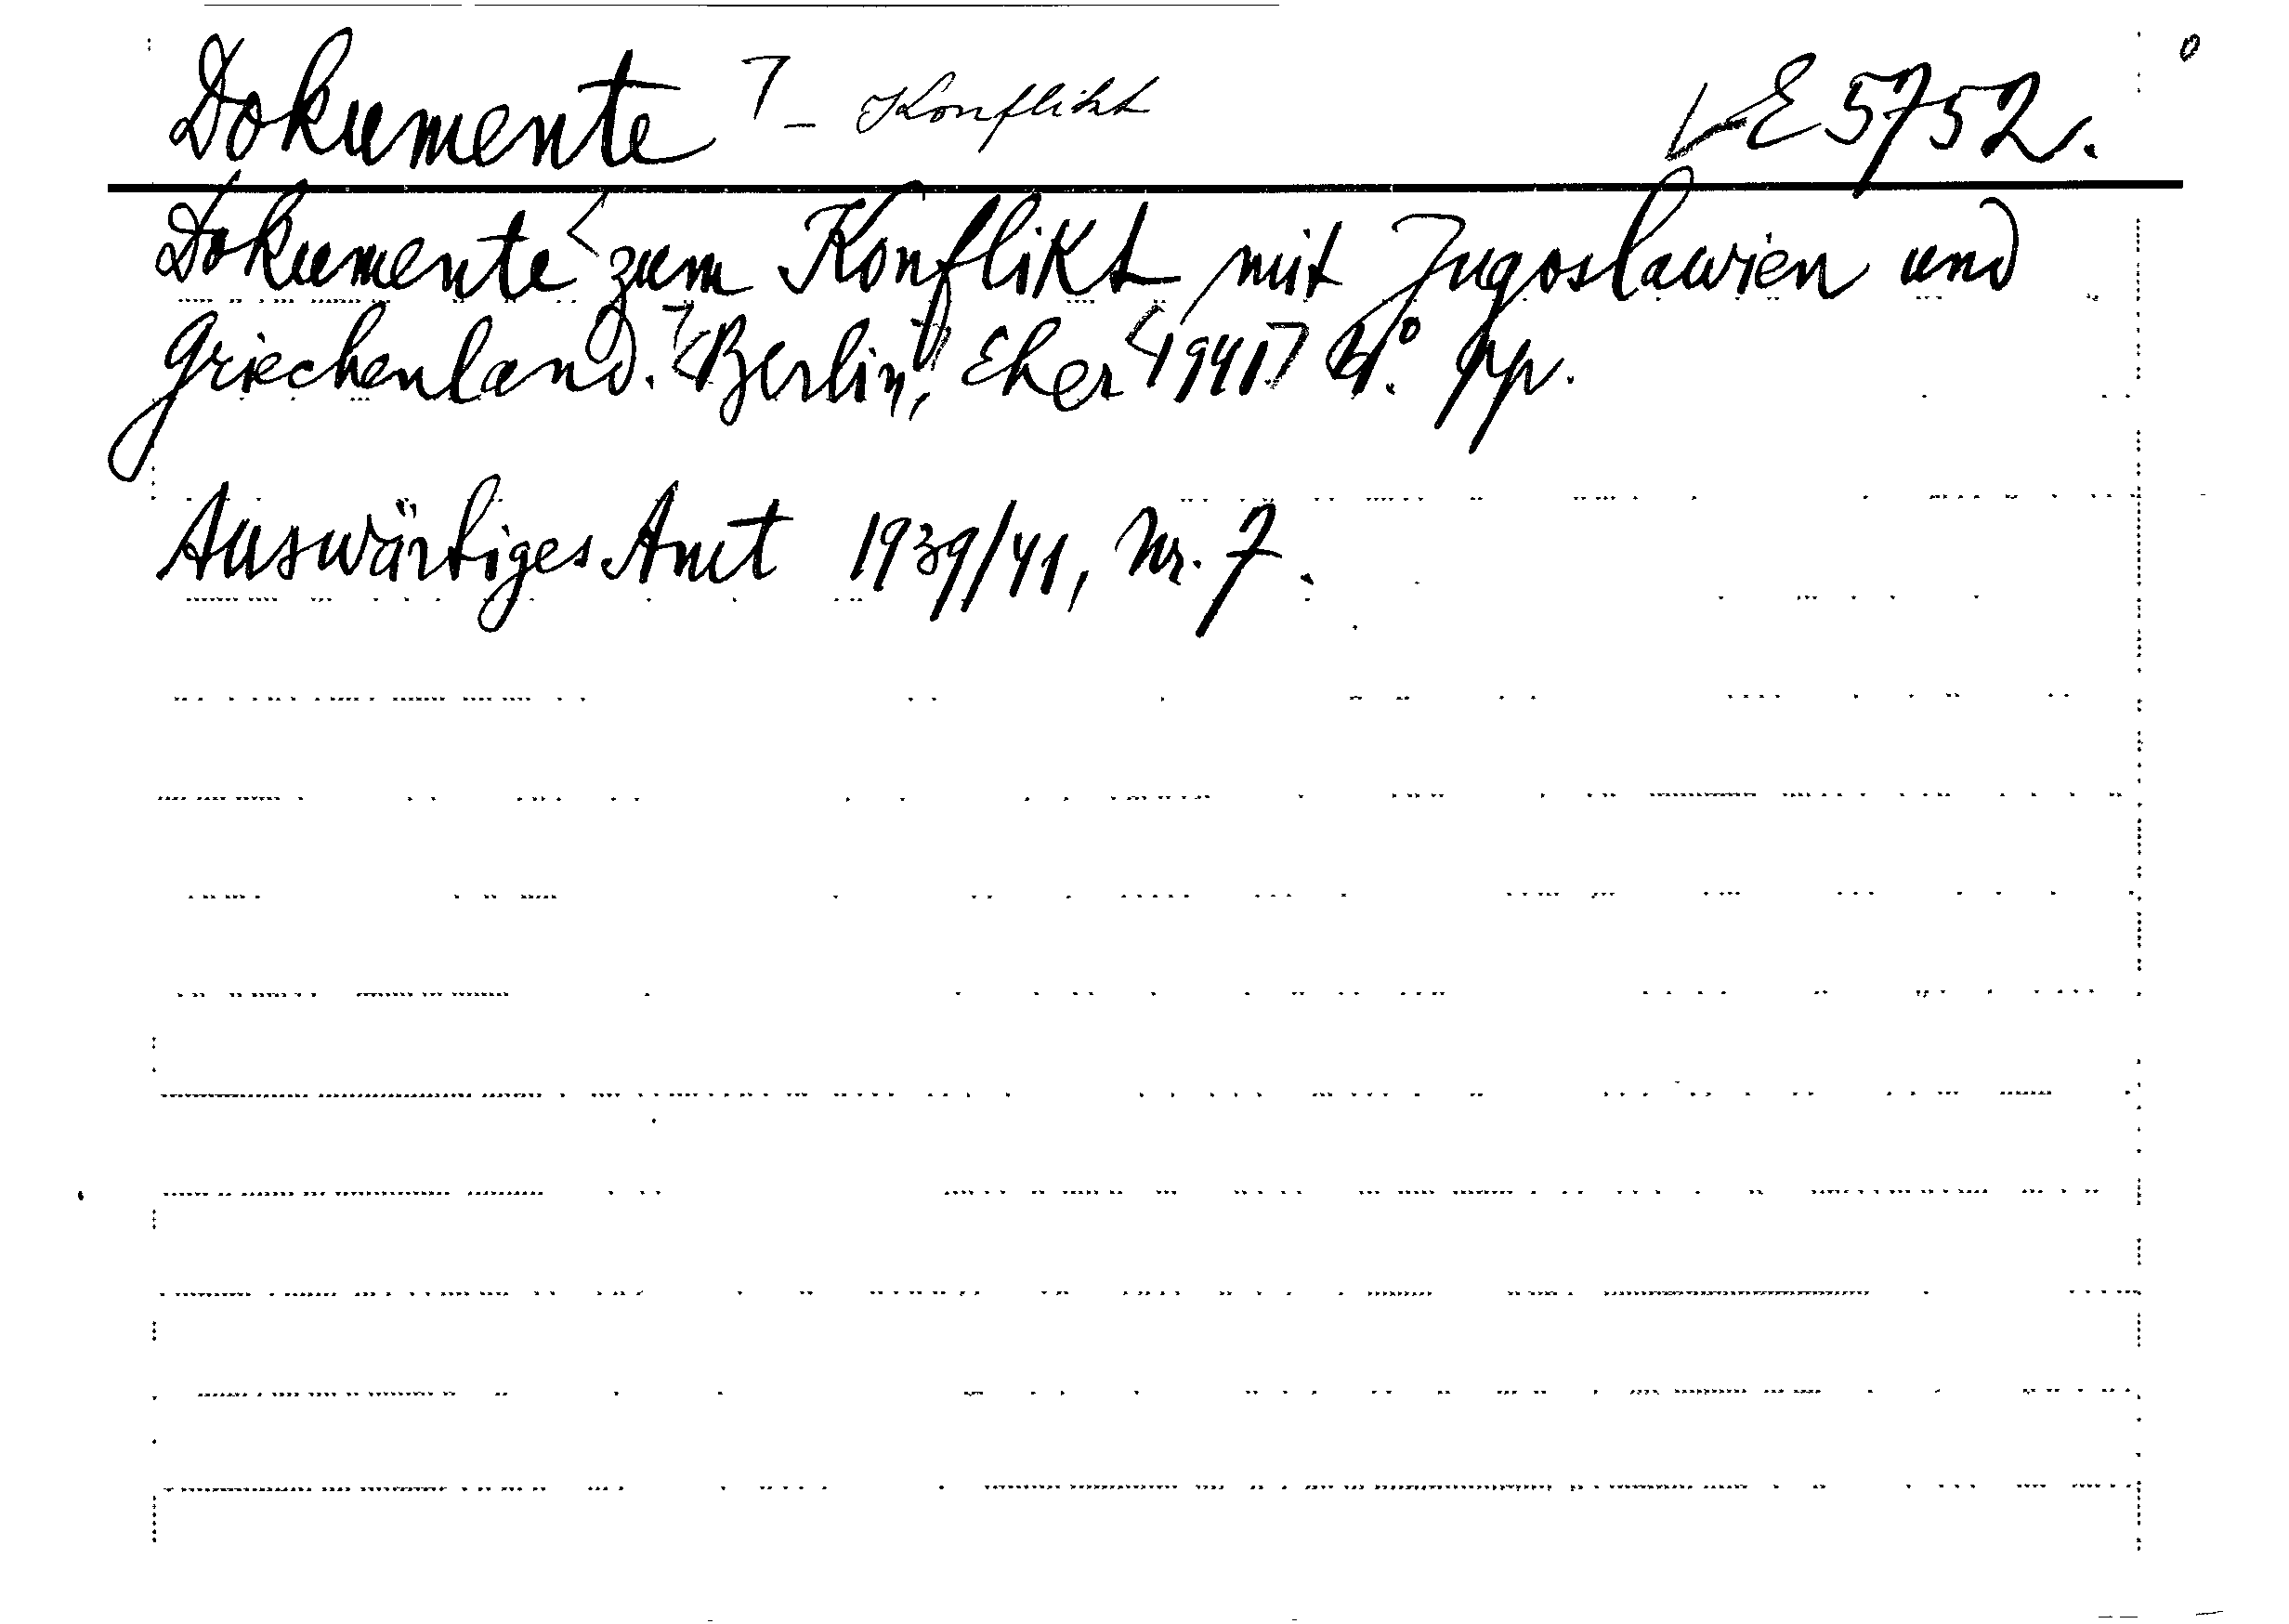 Dokumente - Konflikt E 5752.
Dokumente zum Konflikt mit Jugoslawien und
Griechenland. Berlin, Eher 1941 4° pp.
Auswärtiges Amt 1939/41, Nr. 7.